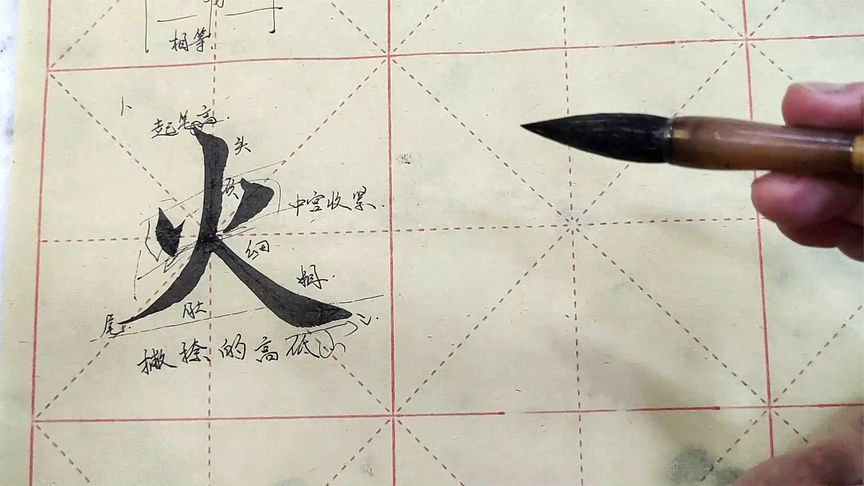 相等
卜
起笔高
头
火
颈
中宫收紧
细
尾
肚
撇捺的高低